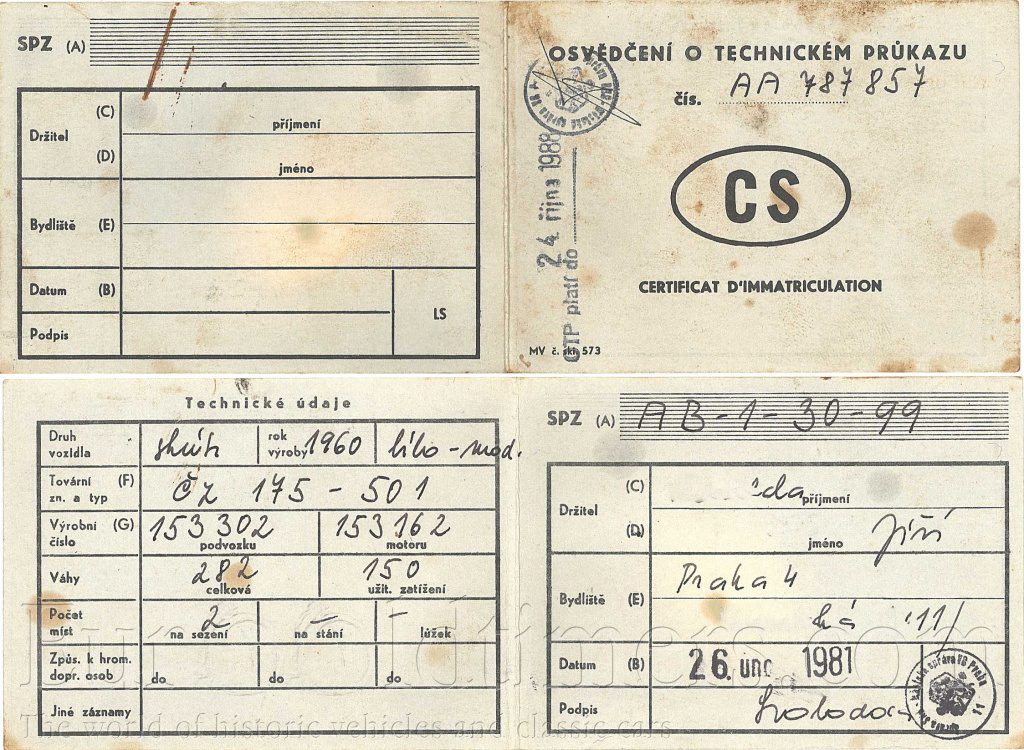 SPZ (A)
Držitel (C)
příjmení
(D)
jméno
Bydliště (E)
Datum (B)
LS
Podpis
OSVĚDČENÍ O TECHNICKÉM PRŮKAZU
čís. AA 787857
CS
CERTIFICAT D'IMMATRICULATION
24. října 1988
OTP platí do
MV č. skl. 573
Technické údaje
Druh vozidla skútr rok výroby 1960 bílo-mod.
Tovární (F)
zn. a typ ČZ 175 - 501
Výrobní (G)
číslo 153302 153162
podvozku motoru
Váhy 282 150
celková užit. zatížení
Počet
míst 2 – –
na sezení na stání lůžek
Způs. k hrom.
dopr. osob do do do
Jiné záznamy
SPZ (A) AB-1-30-99
Držitel (C) da příjmení
(D) jméno Jiří
Bydliště (E) Praha 4
ká 11/
Datum (B) 26. úno 1981
Podpis Svoboda
EuroOldtimers.com
The world of historic vehicles and classic cars